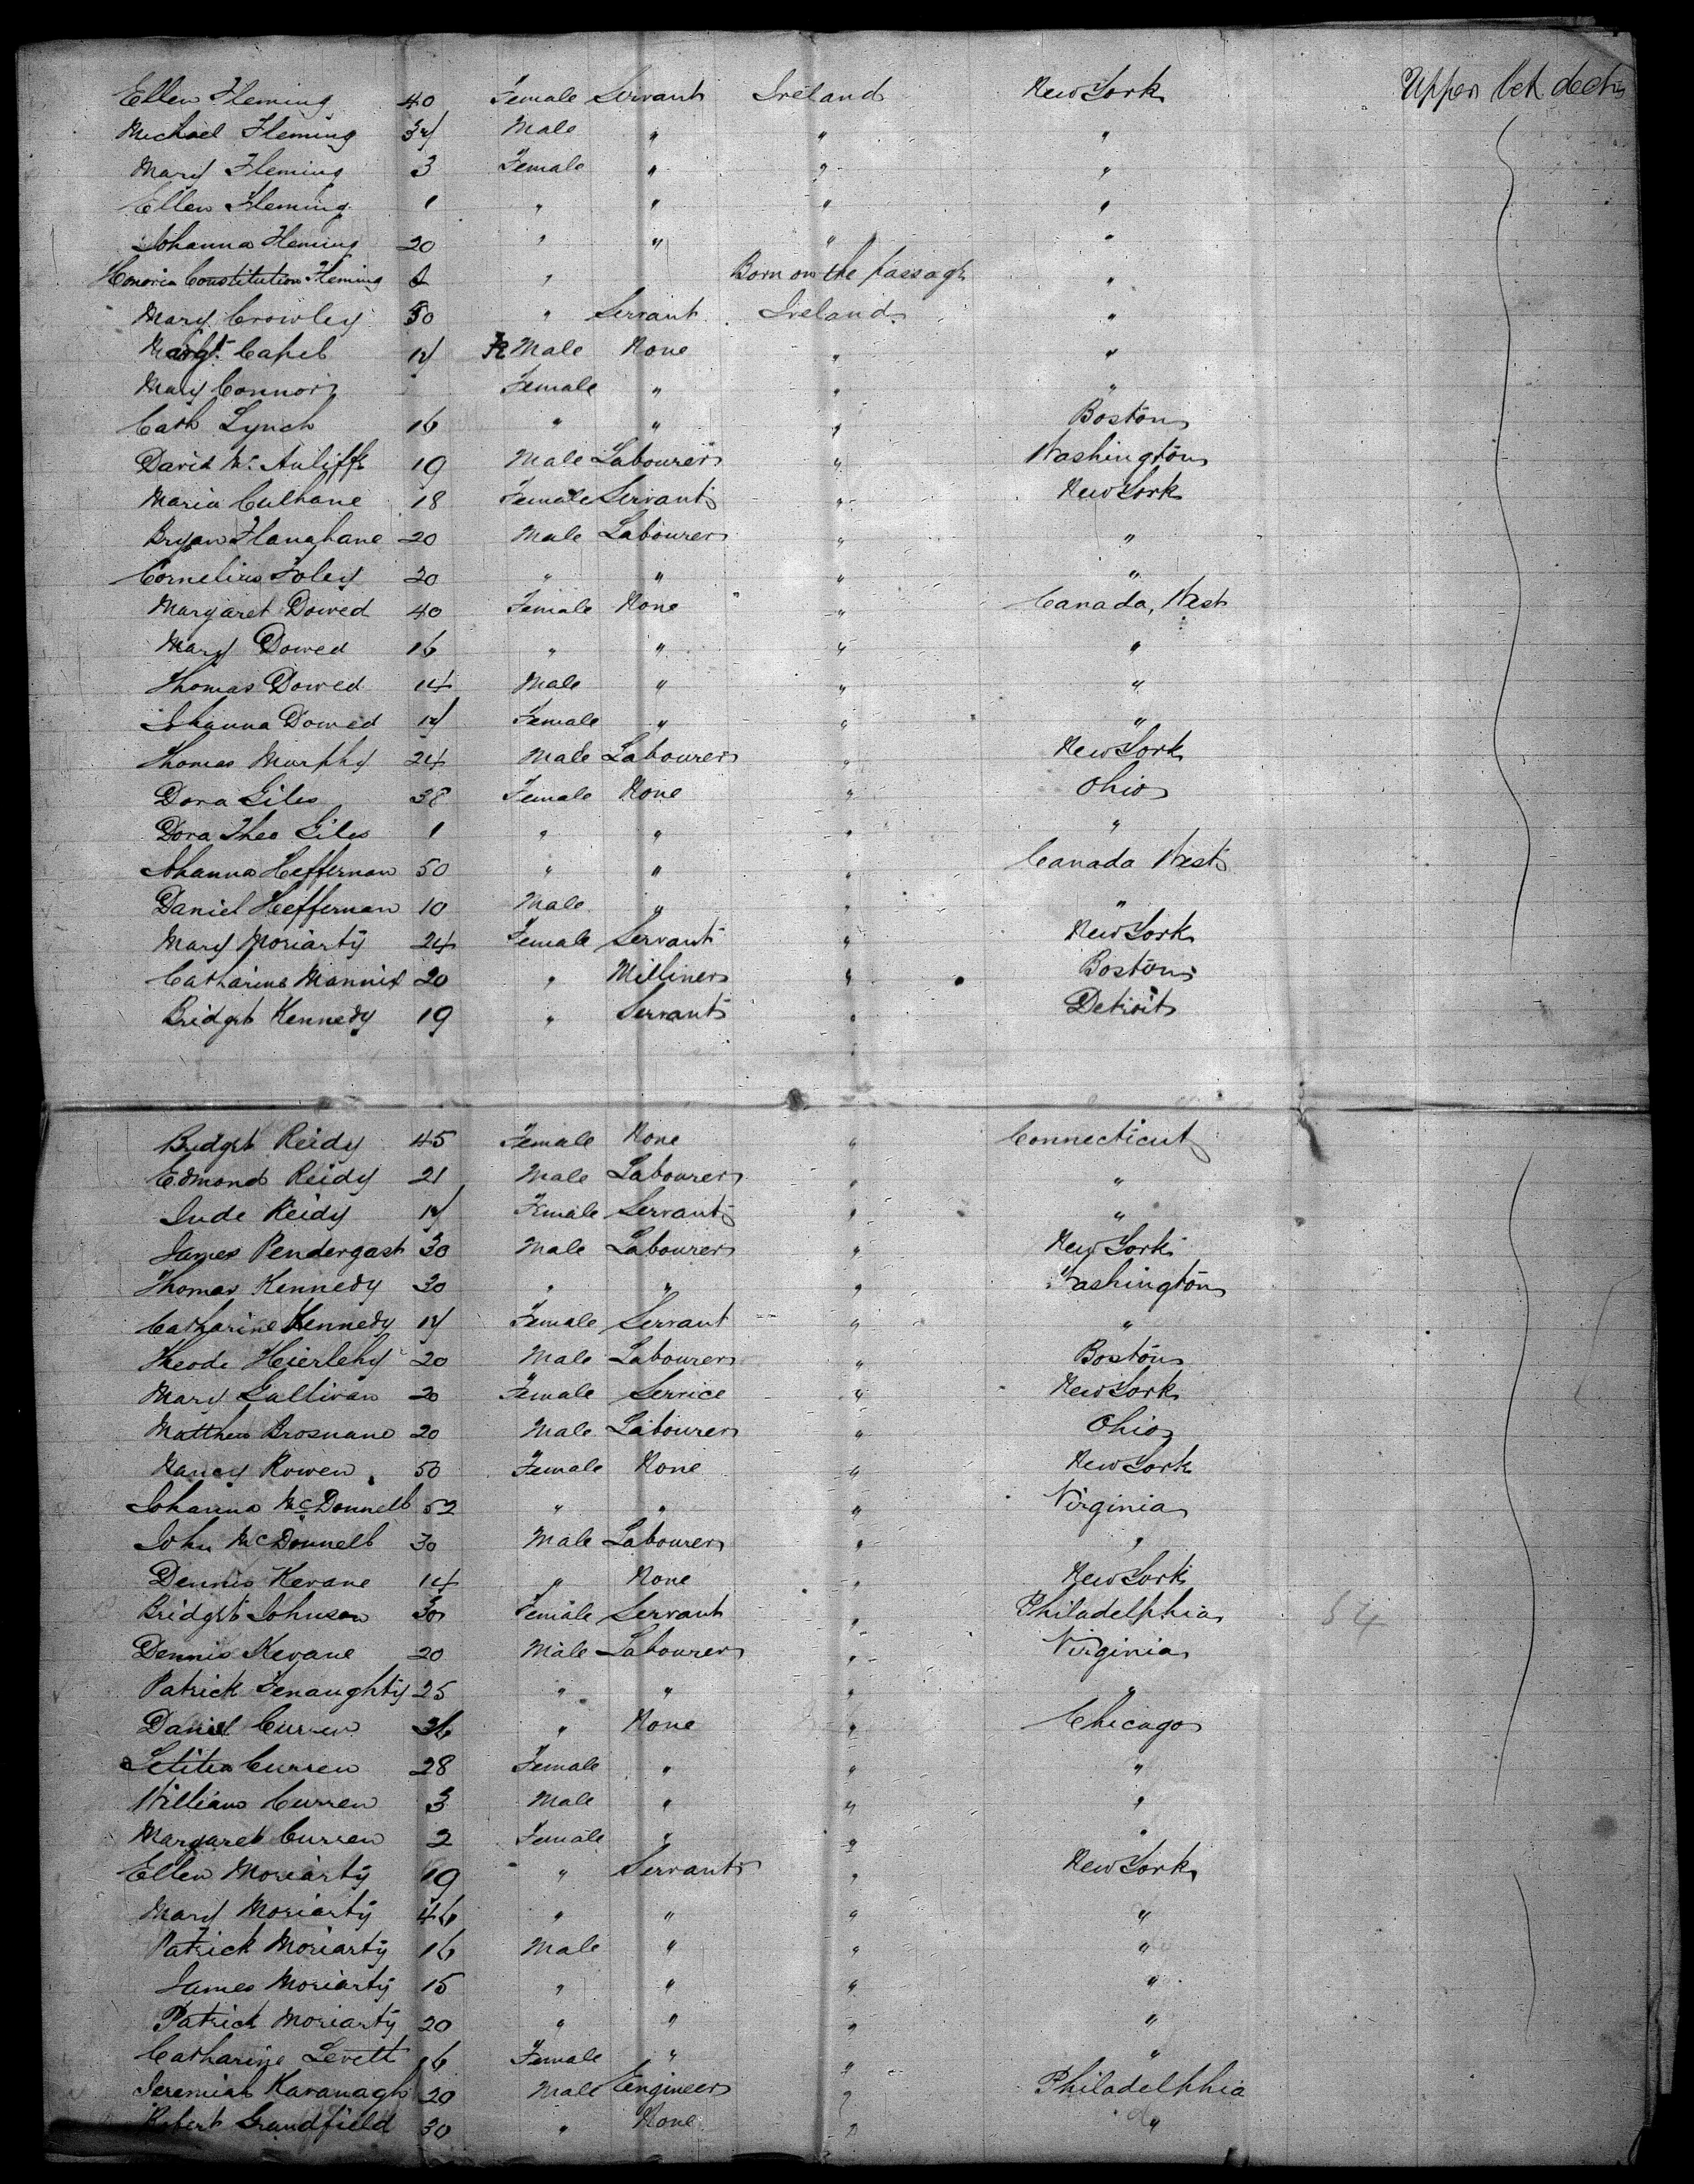 Ellen Fleming 40 Female Servant Ireland New York Upper bet decks
Michael Fleming 34 Male " " "
Mary Fleming 3 Female " " "
Ellen Fleming 1 " " " "
Johanna Fleming 20 " " " "
Honoria Constitution Fleming " Born on the passage "
Mary Crowley 50 " Servant Ireland "
Margt. Capel 14 Fe Male None " "
Mary Connor Female " " "
Cath Lynch 16 " " " Boston
David Mc. Auliffe 19 Male Labourer " Washington
Maria Culhane 18 Female Servant " New York
Bryan Flanghane 20 Male Labourer " "
Cornelius Foley 20 " " " "
Margaret Dowed 40 Female None " Canada, West
Mary Dowed 16 " " " "
Thomas Dowed 14 Male " " "
Johanna Dowed 14 Female " " "
Thomas Murphy 24 Male Labourer " New York
Dora Giles 38 Female None " Ohio
Dora Theo Giles 1 " " " "
Johanna Heffernan 50 " " " Canada West
Daniel Heffernan 10 Male " " "
Mary Moriarty 24 Female Servant " New York
Catharine Mannix 20 " Milliner " Boston
Bridget Kennedy 19 " Servant " Detroit
Bridget Reidy 45 Female None " Connecticut
Edmond Reidy 21 Male Labourer " "
Jude Reidy 14 Female Servant " "
James Pendergast 30 Male Labourer " New York
Thomas Kennedy 30 " " " Washington
Catharine Kennedy 14 Female Servant " "
Theode Heirlehy 20 Male Labourer " Boston
Mary Gallivan 20 Female Service " New York
Matthew Brosnane 20 Male Labourer " Ohio
Nancy Rowen 50 Female None " New York
Johanna McDonnell 52 " " " Virginia
John McDonnell 30 Male Labourer " "
Dennis Kevane 14 " None " New York
Bridget Johnson 30 Female Servant " Philadelphia 54
Dennis Kevane 20 Male Labourer " Virginia
Patrick Fenaughty 25 " " " "
Daniel Curren 36 " None " Chicago
Letitia Curren 28 Female " " "
William Curren 3 Male " " "
Margaret Curren 2 Female " " "
Ellen Moriarty 19 " Servant " New York
Mary Moriarty 46 " " " "
Patrick Moriarty 16 Male " " "
James Moriarty 15 " " " "
Patrick Moriarty 20 " " " "
Catharine Levett 16 Female " " "
Jeremiah Kavanagh 20 Male Engineer " Philadelphia
Robert Grandfield 30 " None " "